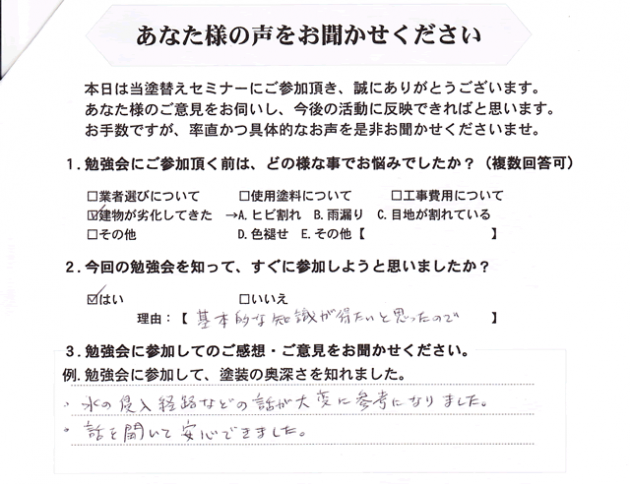 あなた様の声をお聞かせください
本日は当塗替えセミナーにご参加頂き、誠にありがとうございます。
あなた様のご意見をお伺いし、今後の活動に反映できればと思います。
お手数ですが、率直かつ具体的なお声を是非お聞かせくださいませ。
1.勉強会にご参加頂く前は、どの様な事でお悩みでしたか?(複数回答可)
□業者選びについて □使用塗料について □工事費用について
☑建物が劣化してきた →A.ヒビ割れ B.雨漏り C.目地が割れている
□その他 D.色褪せ E.その他【 】
2.今回の勉強会を知って、すぐに参加しようと思いましたか?
☑はい □いいえ
理由:【 基本的な知識が得たいと思ったので 】
3.勉強会に参加してのご感想・ご意見をお聞かせください。
例.勉強会に参加して、塗装の奥深さを知れました。
・水の侵入経路などの話が大変に参考になりました。
・話を聞いて安心できました。